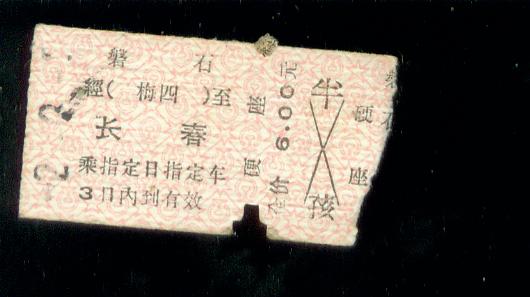 磐 石
經( 梅四 )至
长 春
乘指定日指定车
3日内到有效
硬 座
全价 6.00元
半
孩
硬 座